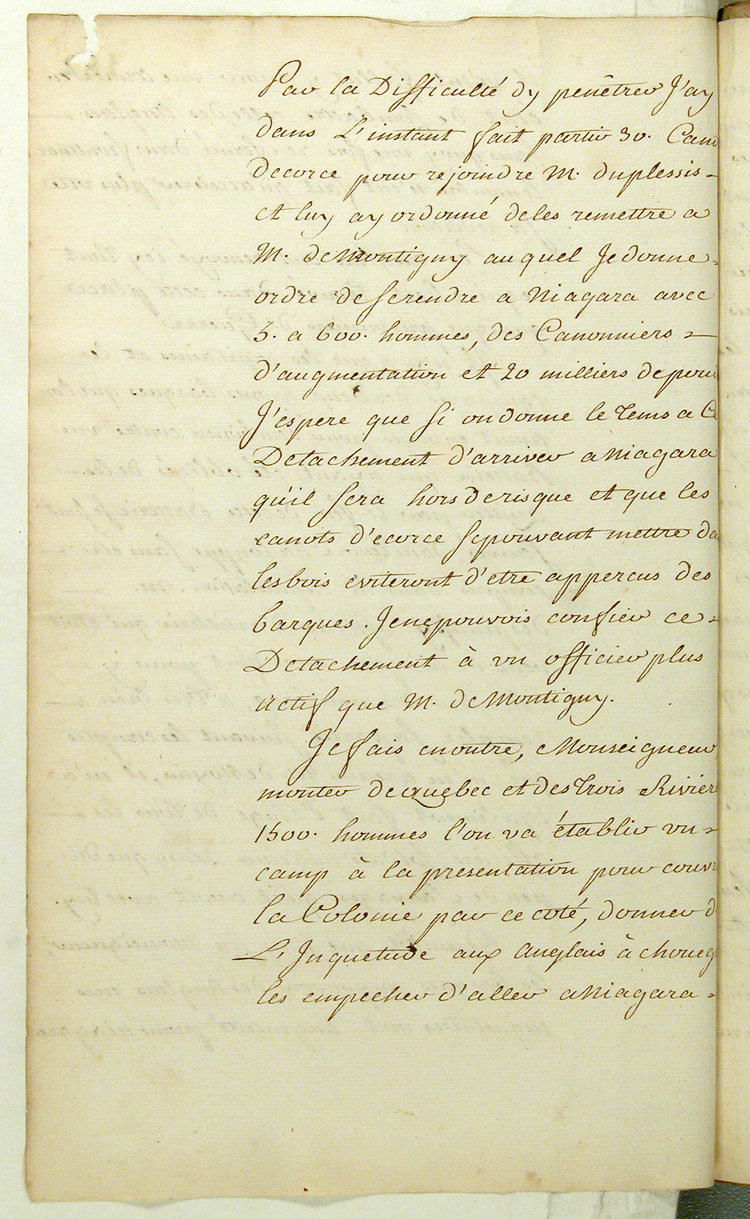 Par la Difficulté dy penêtrer J'ay
dans L'instant fait partir 30. Can
decorce pour rejoindre M. duplessis -
et luy ay ordonné deles remettre a
M. de Montigny auquel Je donne -
ordre de se rendre a Niagara avec
5. a 600. hommes, des Canonniers -
d'augmentation et 20 milliers de pou
J'espere que si on donne le Tems a Ce
Detachement d'arriver a Niagara
qu'il sera hors de risque et que les
canots d'ecorce se pouvant mettre da
les bois eviteront d'etre appercus des
barques. Je ne pouvois confier ce -
Detachement à un officier plus
actif que M. de Montigny.
Je fais en outre, Monseigneur,
monter de quebec et des Trois Rivier
1500. hommes l'on va établir un -
camp à la presentation pour couvr
la Colonie par ce coté, donner d
L'Inquetude aux Anglais à choueg
les empecher d'aller a Niagara -